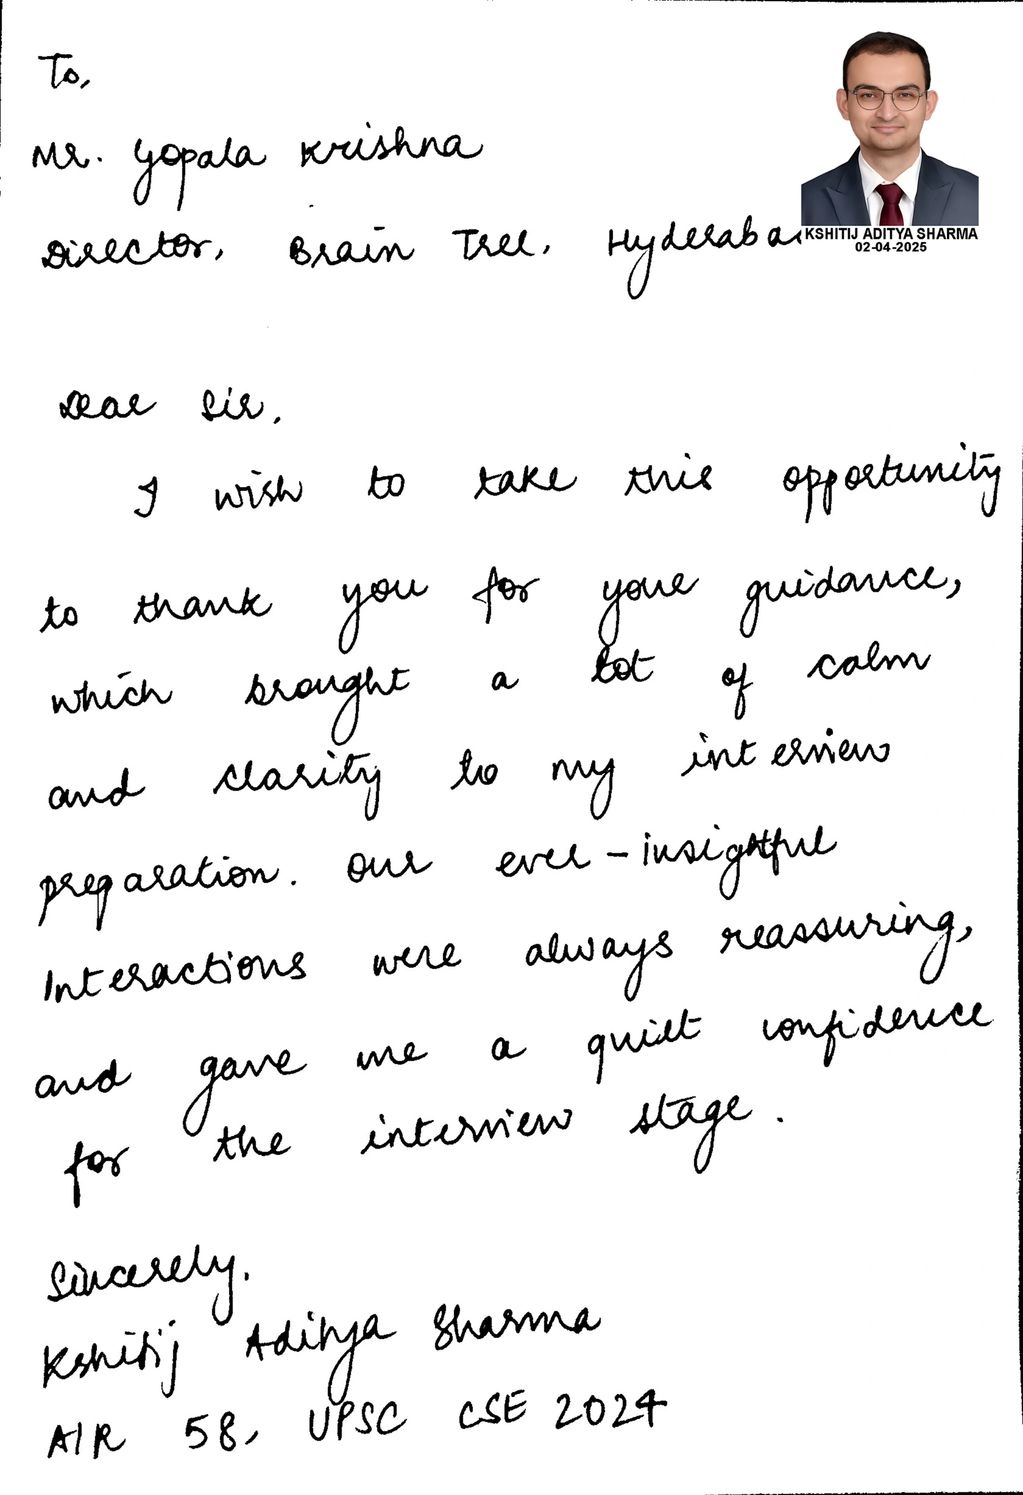 To,
Mr. Gopala Krishna
Director, Brain Tree, Hyderaba
KSHITIJ ADITYA SHARMA
02-04-2025
Dear Sir,
I wish to take this opportunity
to thank you for your guidance,
which brought a lot of calm
and clarity to my interview
preparation. Our ever-insightful
Interactions were always reassuring,
and gave me a quiet confidence
for the interview stage.
Sincerely,
Kshitij Aditya Sharma
AIR 58, UPSC CSE 2024